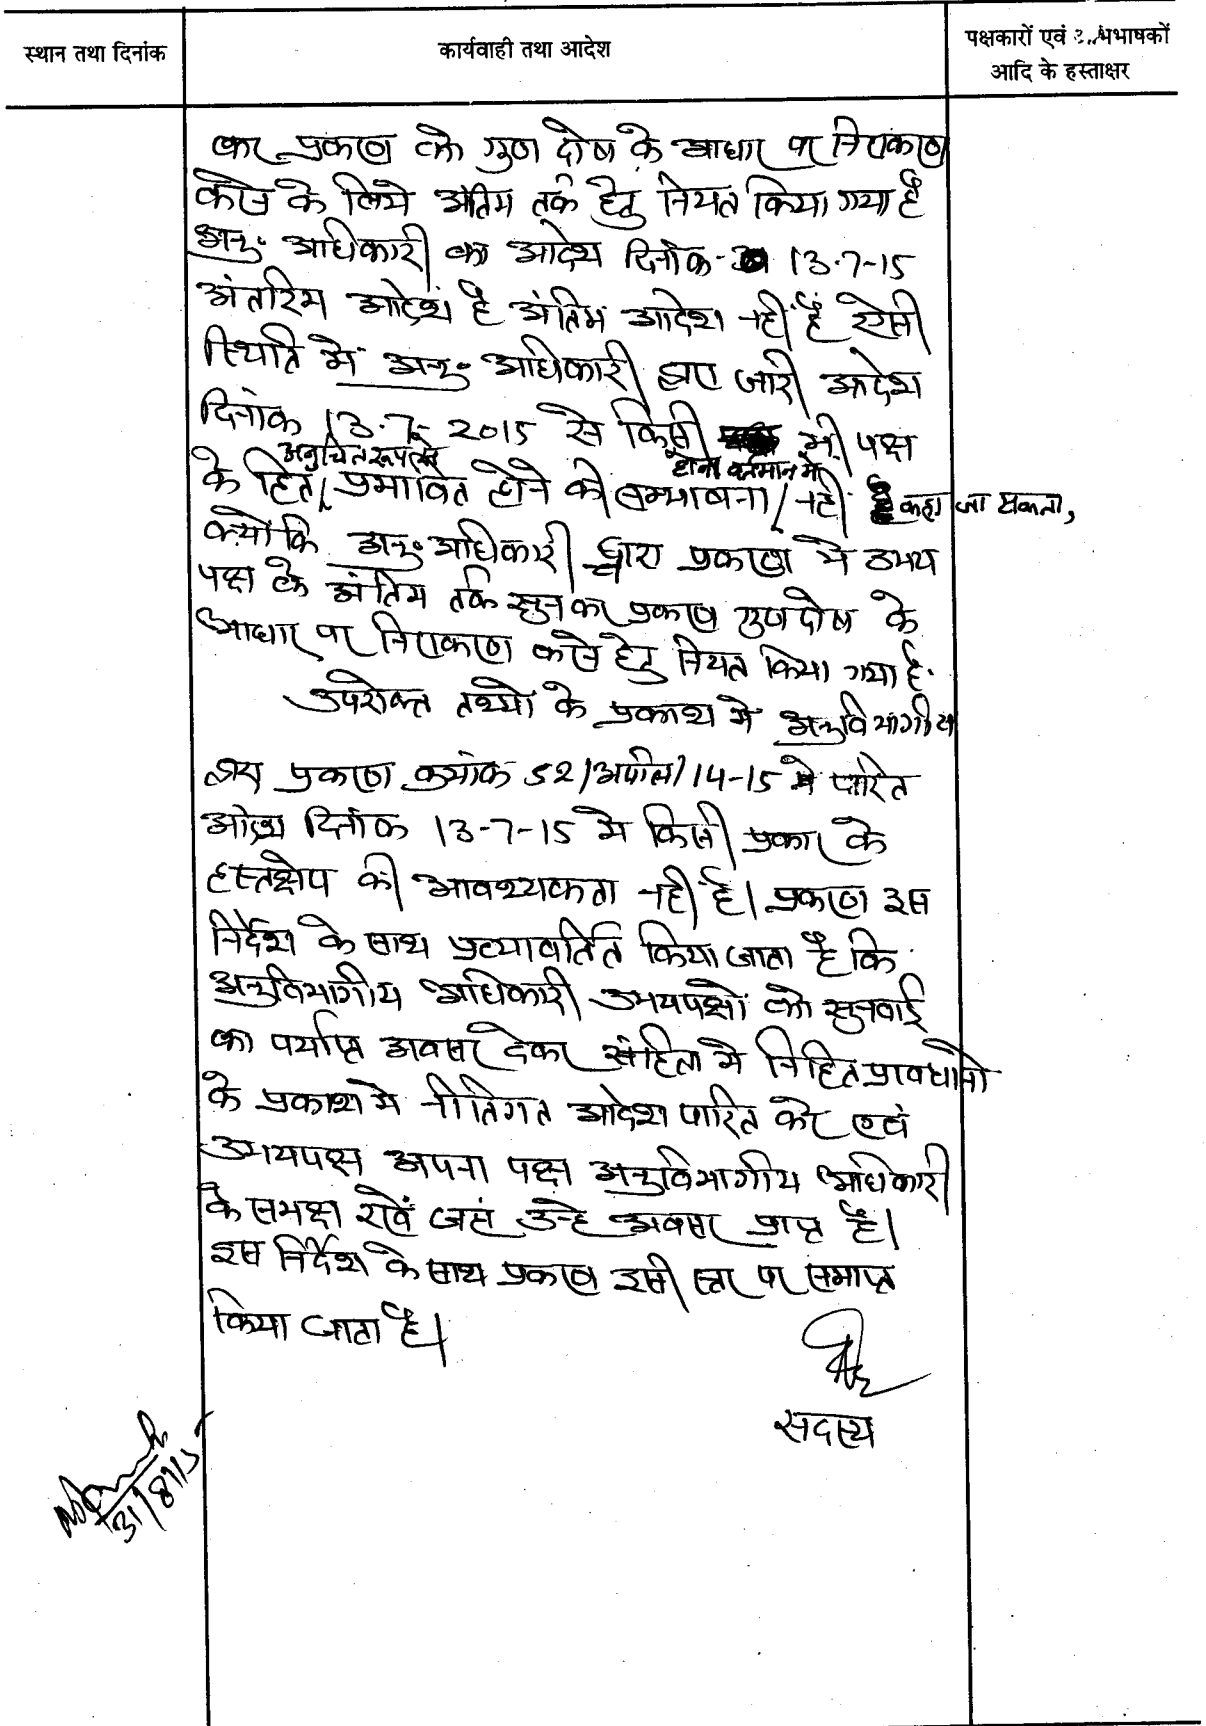 स्थान तथा दिनांक
कार्यवाही तथा आदेश
पक्षकारों एवं अभिभाषकों
आदि के हस्ताक्षर
कर प्रकरण को गुण दोष के आधार पर निराकरण
करने के लिये अंतिम तर्क हेतु नियत किया गया है
अनु. अधिकारी का आदेश दिनांक 13-7-15
अंतरिम आदेश है अंतिम आदेश नहीं है ऐसी
स्थिति में अनु. अधिकारी द्वारा जारी आदेश
दिनांक 13-7-2015 से किसी भी पक्ष
अनुचित रूप से होना वर्तमान में
के हित प्रभावित होने की सम्भावना नहीं कहा जा सकता,
क्योंकि अनु. अधिकारी द्वारा प्रकरण में उभय
पक्ष के अंतिम तर्क सुनकर प्रकरण गुणदोष के
आधार पर निराकरण करने हेतु नियत किया गया है.
उपरोक्त तथ्यों के प्रकाश में अनुविभागीय
द्वारा प्रकरण क्रमांक 52/अपील/14-15 में पारित
आदेश दिनांक 13-7-15 में किसी प्रकार के
हस्तक्षेप की आवश्यकता नहीं है। प्रकरण इस
निर्देश के साथ प्रत्यावर्तित किया जाता है कि
अनुविभागीय अधिकारी उभयपक्षों को सुनवाई
का पर्याप्त अवसर देकर संहिता में निहित प्रावधानों
के प्रकाश में नीतिगत आदेश पारित करे एवं
उभयपक्ष अपना पक्ष अनुविभागीय अधिकारी
के समक्ष रखें जहां उन्हे अवसर प्राप्त है।
इस निर्देश के साथ प्रकरण इसी स्तर पर समाप्त
किया जाता है।
सदस्य
31/8/15